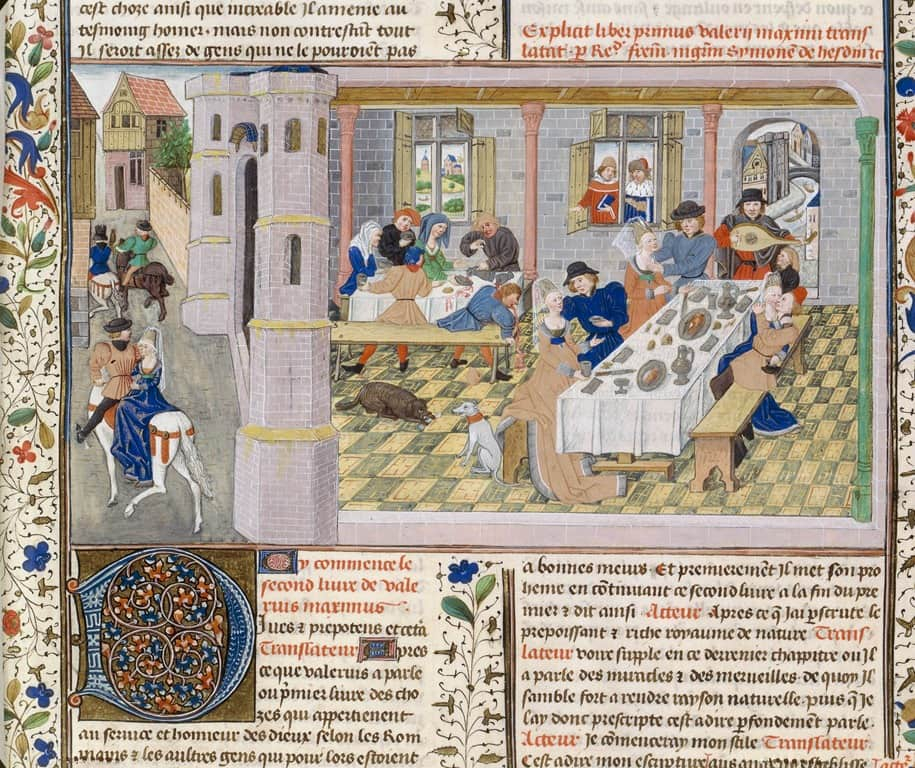 cest chose ainsi que increable Il ameine au
tesmoing homer · mais non contrestāt tout
Il seroit assez de gens qui ne le pouroiēt pas
Explicit liber primus valerij maximi trans
latat' p Red' frēm mgrm Symonē de hesdinic
Cy commence le
second liure de vale
rius maximus
Diues & prepotens et ceta
Translateur Apres
ce que valerius a parle
ou pmier liure des cho
zes qui appertienent
au seruice et honneur des dieux selon les Rom
mains & les aultres gens qui pour lors estoient
a bonnes meurs · Et premieremēt Il met son pro
heme en cōtinuant ce second liure a la fin du pre
mier & dit ainsi Acteur Apres ce q Jai pscrute le
prepoissant & riche royaume de nature Trans
lateur voire supple en ce derrenier chappitre ou Il
a parle des miracles & des merueilles · de quoy Il
samble fort a rendre rayson naturelle · puis q Je
lay donc prescripte cest a dire pfondement parle ·
Acteur Je cōmenceray mon stile Translateur
Cest a dire mon escripture